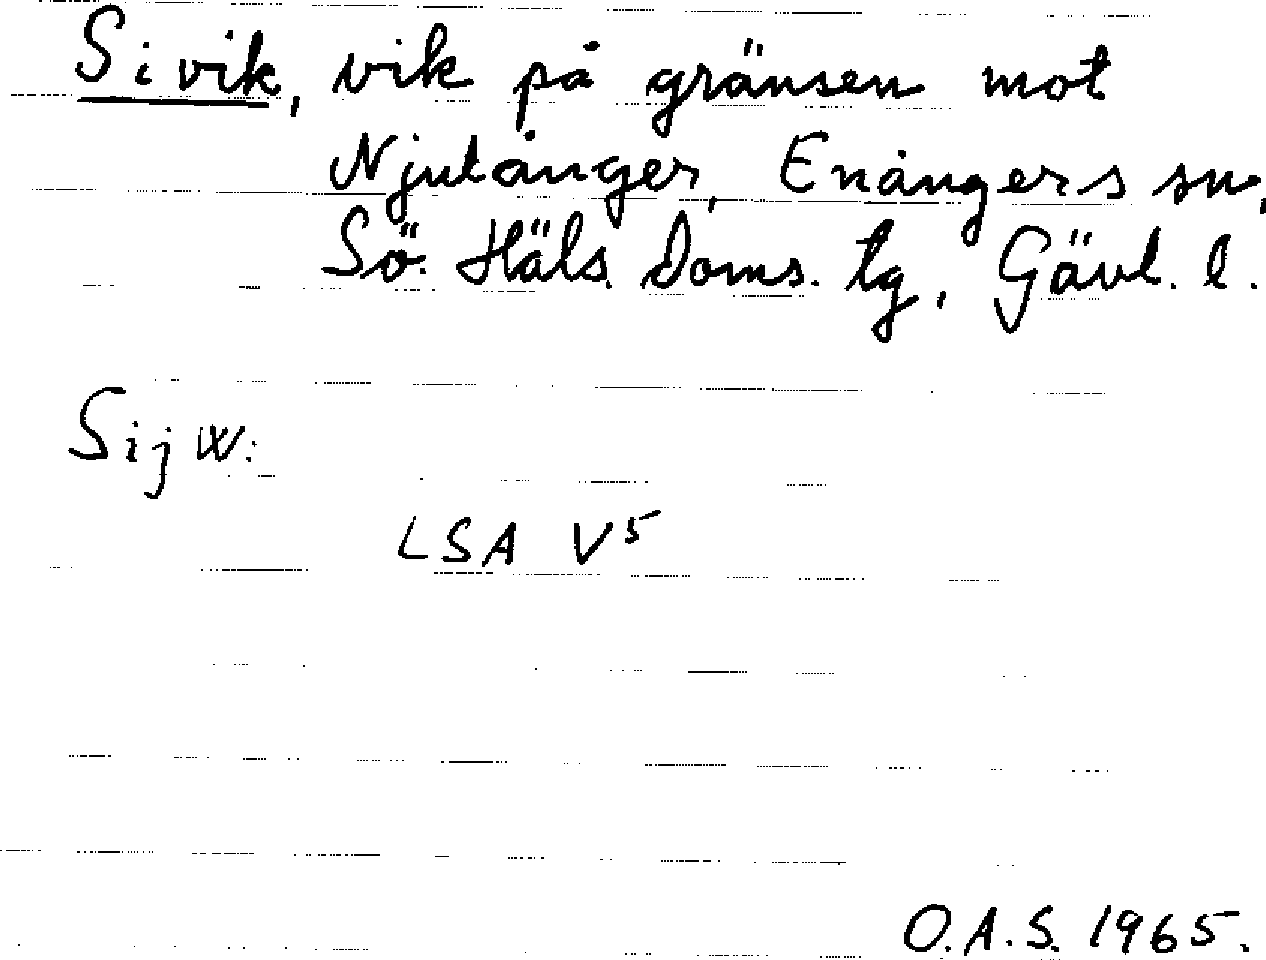 Sivik, vik på gränsen mot
Njutånger, Enångers sn,
Sö. Häls. Doms. tg, Gävl. l.
Sijw:
LSA V5
O.A.S. 1965.